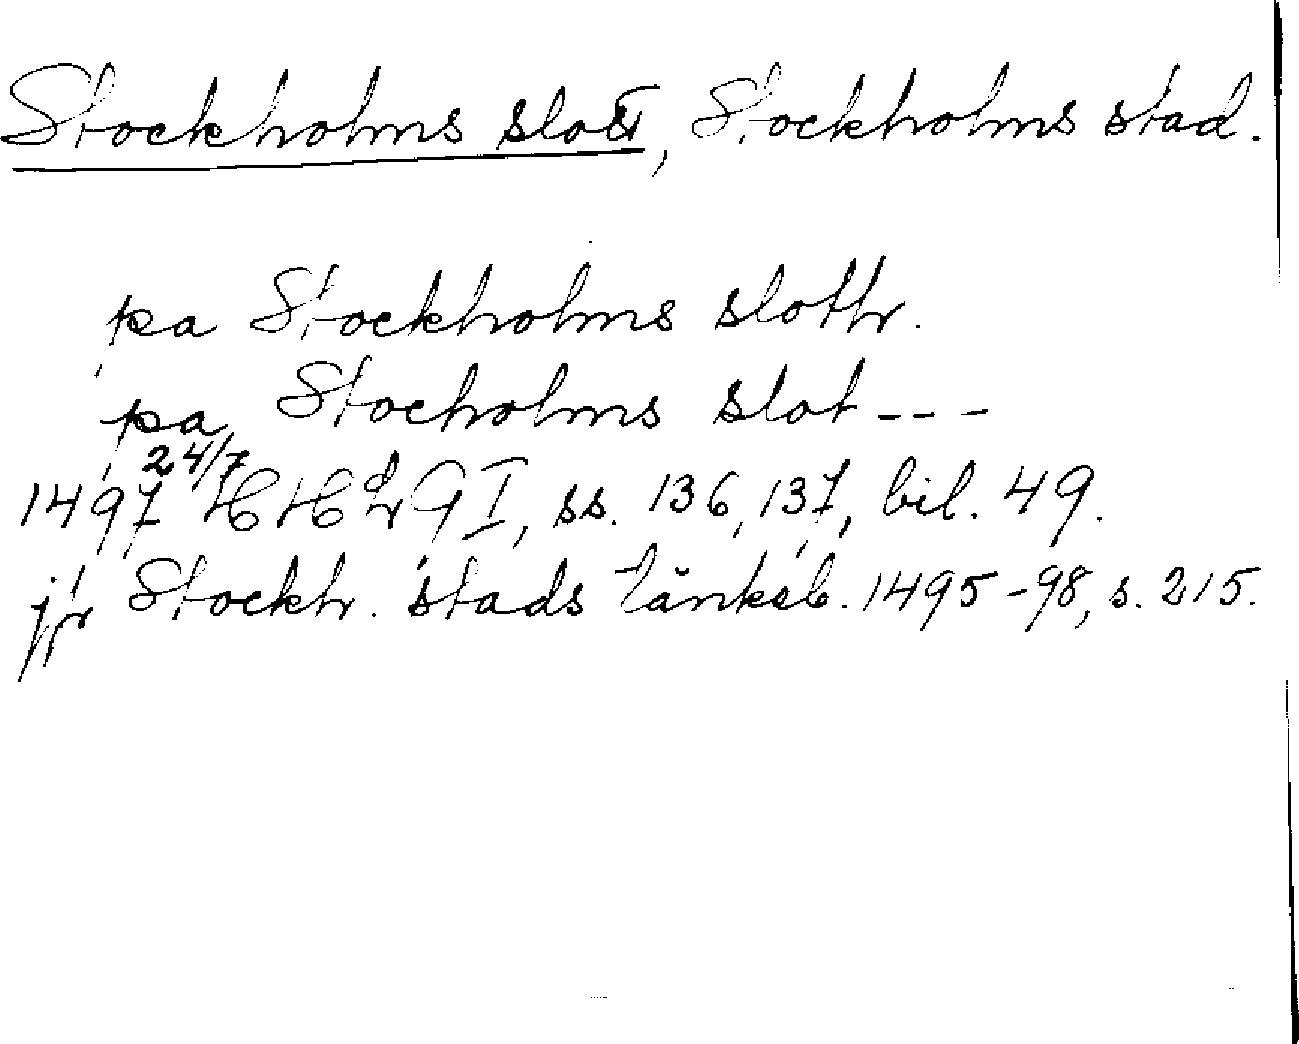 Stockholms slott, Stockholms stad.
pa Stockholms slotth.
pa Stocholms slot ---
1497 24/7 HH d G I, ss. 136, 137, bil. 49.
jfr Stockh. stads tänkeb. 1495-98, s. 215.